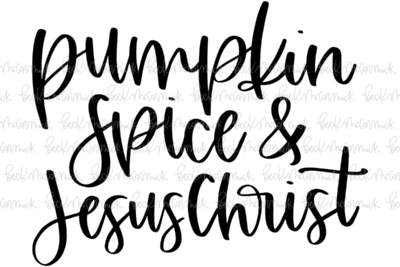 pumpkin
spice &
Jesus Christ